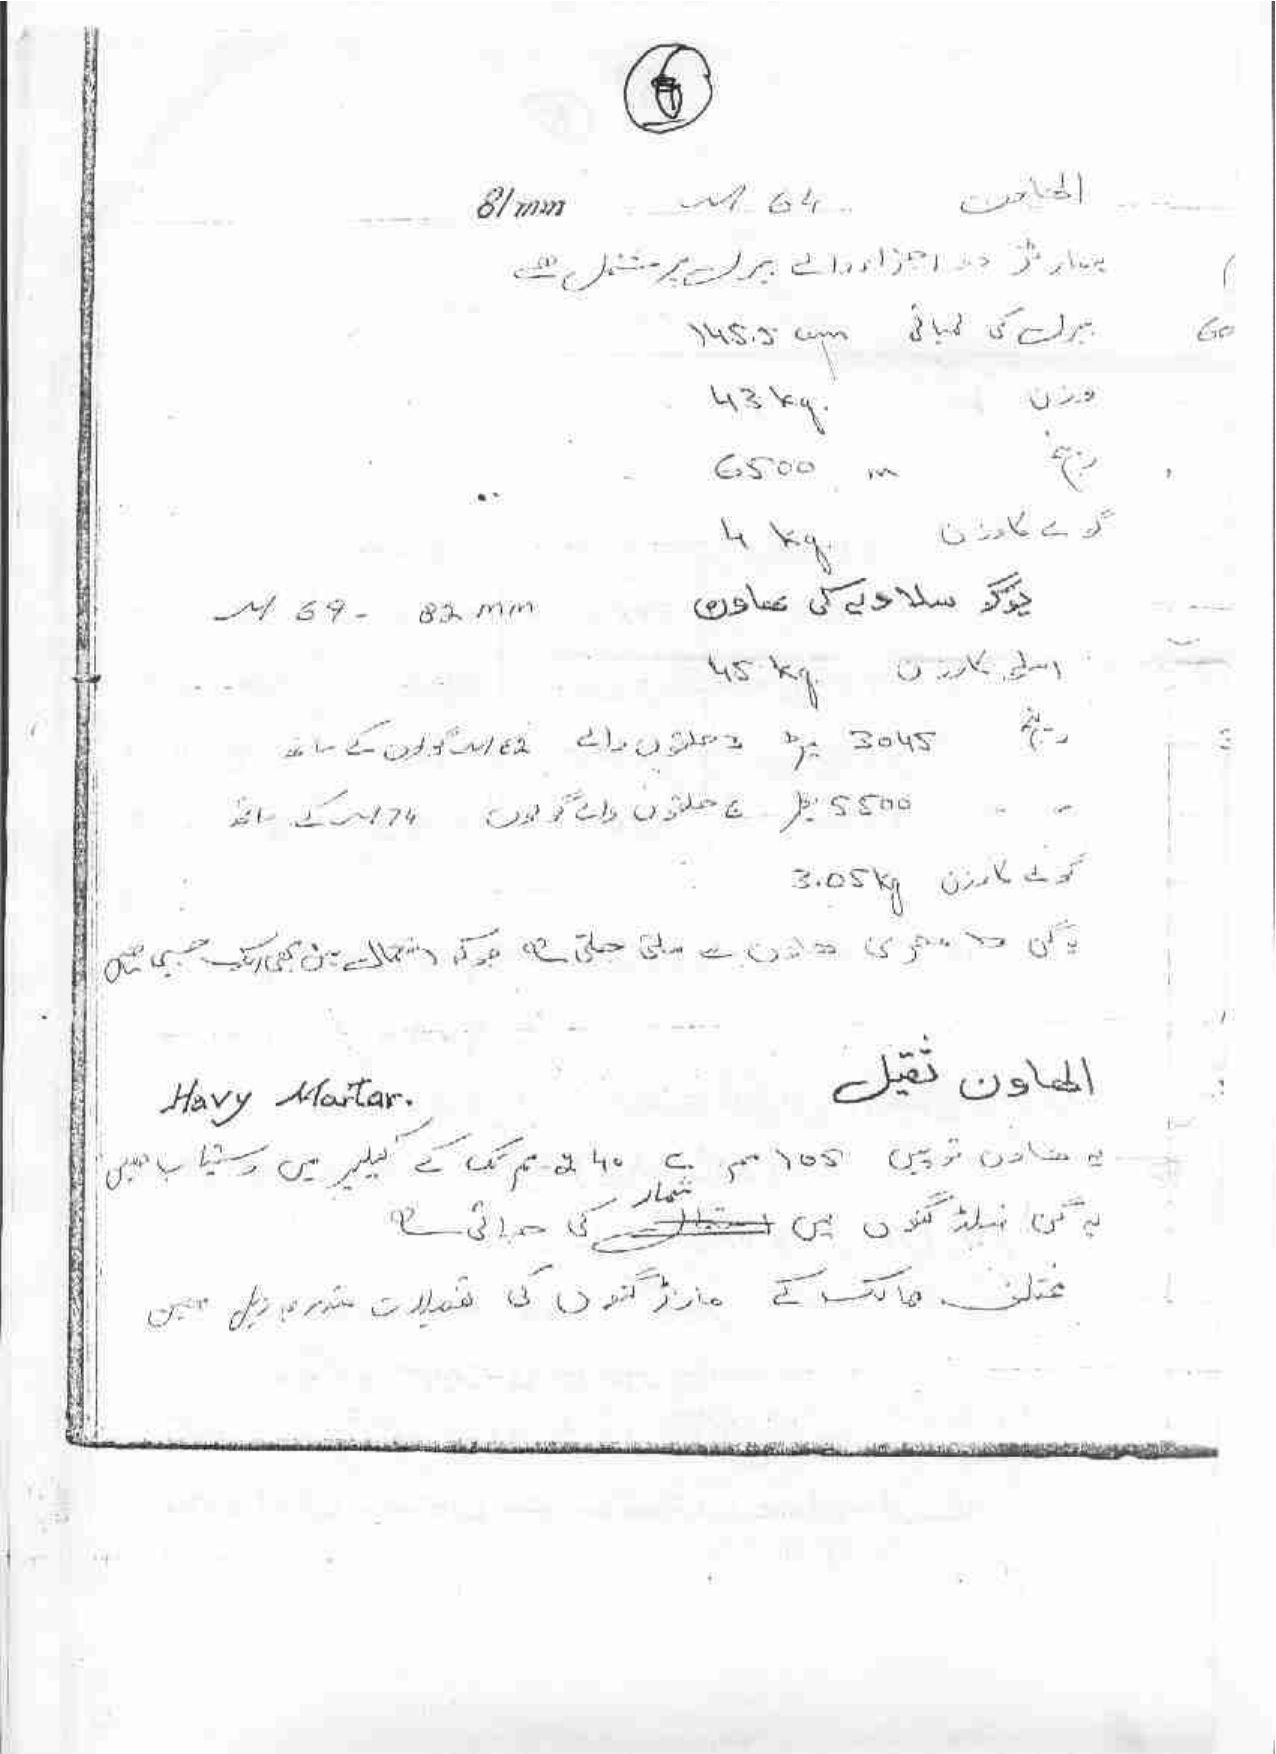 الهاون M 64 81 mm
یہ مارٹر دو اجزاء والے بیرل پر مشتمل ہے
بیرل کی لمبائی 145.5 cm
وزن 43 kg.
رینج 6500 m
گولے کا وزن 4 kg.
یوگو سلاویہ کی هاون M 69 - 82 mm
اسلحے کا وزن 45 kg
رینج 3045 میٹر حلقوں والے M 62 گولوں کے ساتھ
" " 5500 میٹر حلقوں والے گولوں M 74 کے ساتھ
گولے کا وزن 3.05 kg
یہ گن مصری هاون سے ملتی جلتی ہے جو کہ استعمال میں بھی ایک جیسی ہیں
الهاون ثقیل Havy Mortar.
یہ هاون توپیں 105 مم سے 240 مم تک کے کیلیبر میں دستیاب ہیں
یہ گن فیلڈ گنوں میں شمار کی جاتی ہے
مختلف ممالک کے مارٹر گنوں کی تفصیلات مندرجہ ذیل ہیں